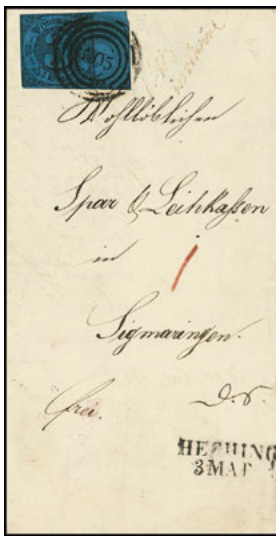 Wohllöblichen
Spar & Leihkassen
in
Sigmaringen.
frei.
D. S.
HECHING
3 MAI